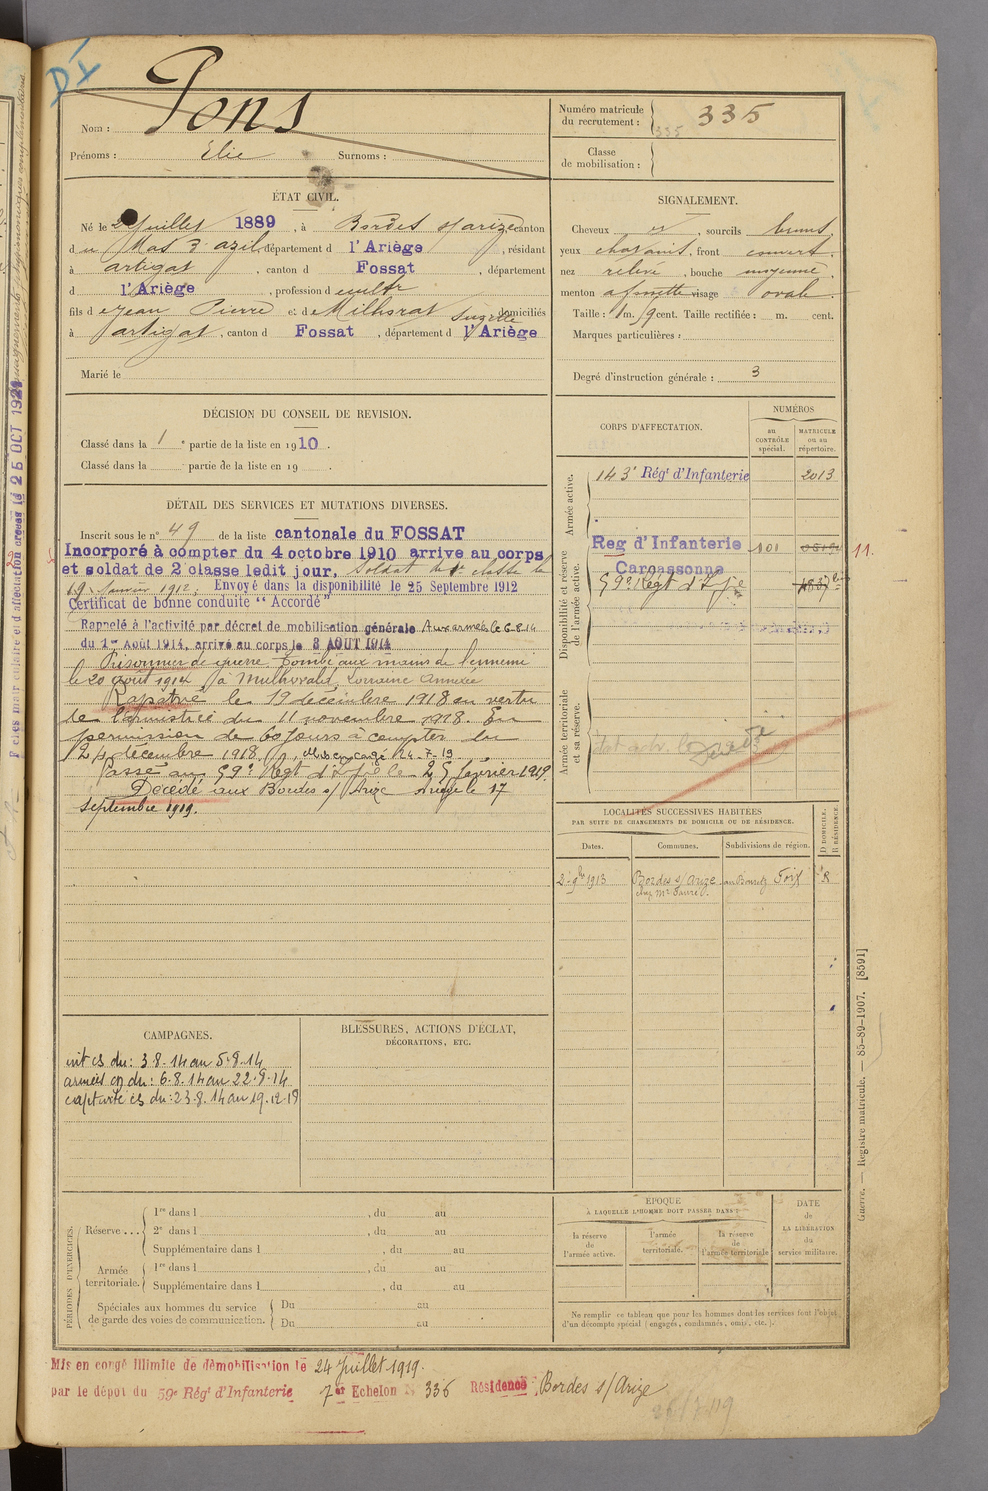 DI
Nom : Pons
Prénoms : Élie Surnoms :
Numéro matricule du recrutement : 335
335
Classe de mobilisation :
ÉTAT CIVIL.
Né le 2 Juillet 1889, à Bordes s/arize canton
du Mas d'azil département d l'Ariège, résidant
à artigat, canton d Fossat, département
d l'Ariège, profession d cultr
fils de Jean Pierre et de Milhorat Suzette domiciliés
à artigat, canton d Fossat, département d l'Ariège
Marié le
SIGNALEMENT.
Cheveux et, sourcils bruns,
yeux chatains, front couvert,
nez relevé, bouche moyenne,
menton à fossette visage ovale.
Taille : 1 m. cent. Taille rectifiée : m. cent.
Marques particulières :
Degré d'instruction générale : 3
DÉCISION DU CONSEIL DE REVISION.
Classé dans la 1e partie de la liste en 1910.
Classé dans la partie de la liste en 19 .
DÉTAIL DES SERVICES ET MUTATIONS DIVERSES.
Inscrit sous le n° 49 de la liste cantonale du FOSSAT
Incorporé à compter du 4 octobre 1910 arrive au corps
et soldat de 2e classe ledit jour, Soldat de 1e classe le
19 Janvier 1912, Envoyé dans la disponibilité le 25 Septembre 1912
Certificat de bonne conduite "Accordé"
Rappelé à l'activité par décret de mobilisation générale Aux armées le 6.8.14
du 1er Août 1914, arrivé au corps le 3 AOUT 1914
Prisonnier de guerre Tombé aux mains de l'ennemi
le 20 août 1914 à Lorraine Annexée
Rapatrié le 19 décembre 1918 en vertu
de l'armistice du 11 novembre 1918. En
permission de 60 jours à compter du
24 décembre 1918, Mis en congé 24-7-19
Passé au 59e Régt d'Infie le 25 février 1919.
Décédé aux Bordes s/ Arize Ariège le 17
septembre 1919.
CORPS D'AFFECTATION.
NUMÉROS
au CONTRÔLE spécial.
MATRICULE ou au répertoire.
Armée active.
143e Régt d'Infanterie 2013
Disponibilité et réserve de l'armée active.
Reg d'Infanterie 101
11.
Carcassonne
59e Régt d'Infie
Armée territoriale et sa réserve.
LOCALITÉS SUCCESSIVES HABITÉES
PAR SUITE DE CHANGEMENTS DE DOMICILE OU DE RÉSIDENCE.
Dates.
Communes.
Subdivisions de région.
D DOMICILE. R RÉSIDENCE.
2 9bre 1913 Bordes s/ Arize Foix R
chez Mr Faure
CAMPAGNES.
int cs du : 3.8.14 au 5.8.14
armées cp du : 6.8.14 au 22.8.14
captivité cs du : 23.8.14 au 19.12.18
BLESSURES, ACTIONS D'ÉCLAT,
DÉCORATIONS, ETC.
PÉRIODES D'EXERCICES.
Réserve ...
1re dans l , du au
2e dans l , du au
Supplémentaire dans l , du au
Armée territoriale.
1re dans l , du au
Supplémentaire dans l , du au
Spéciales aux hommes du service de garde des voies de communication.
Du au
Du au
ÉPOQUE
À LAQUELLE L'HOMME DOIT PASSER DANS :
la réserve de l'armée active.
l'armée territoriale.
la réserve de l'armée territoriale
DATE de LA LIBÉRATION du service militaire.
Ne remplir ce tableau que pour les hommes dont les services font l'objet
d'un décompte spécial (engagés, condamnés, omis, etc.).
Guerre. — Registre matricule. — 85-89-1907. [8591]
Mis en congé illimité de démobilisation le 24 Juillet 1919.
par le dépôt du 59e Régt d'Infanterie 7er Echelon N 336 Résidence Bordes s/Arize